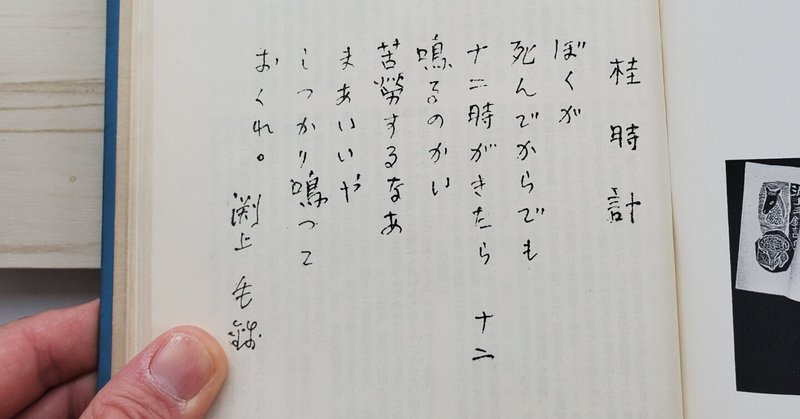 桂時計
ぼくが
死んでからでも
十二時がきたら 十二
鳴るのかい
苦勞するなあ
まあいいや
しっかり鳴って
おくれ。
渕上 毛錢